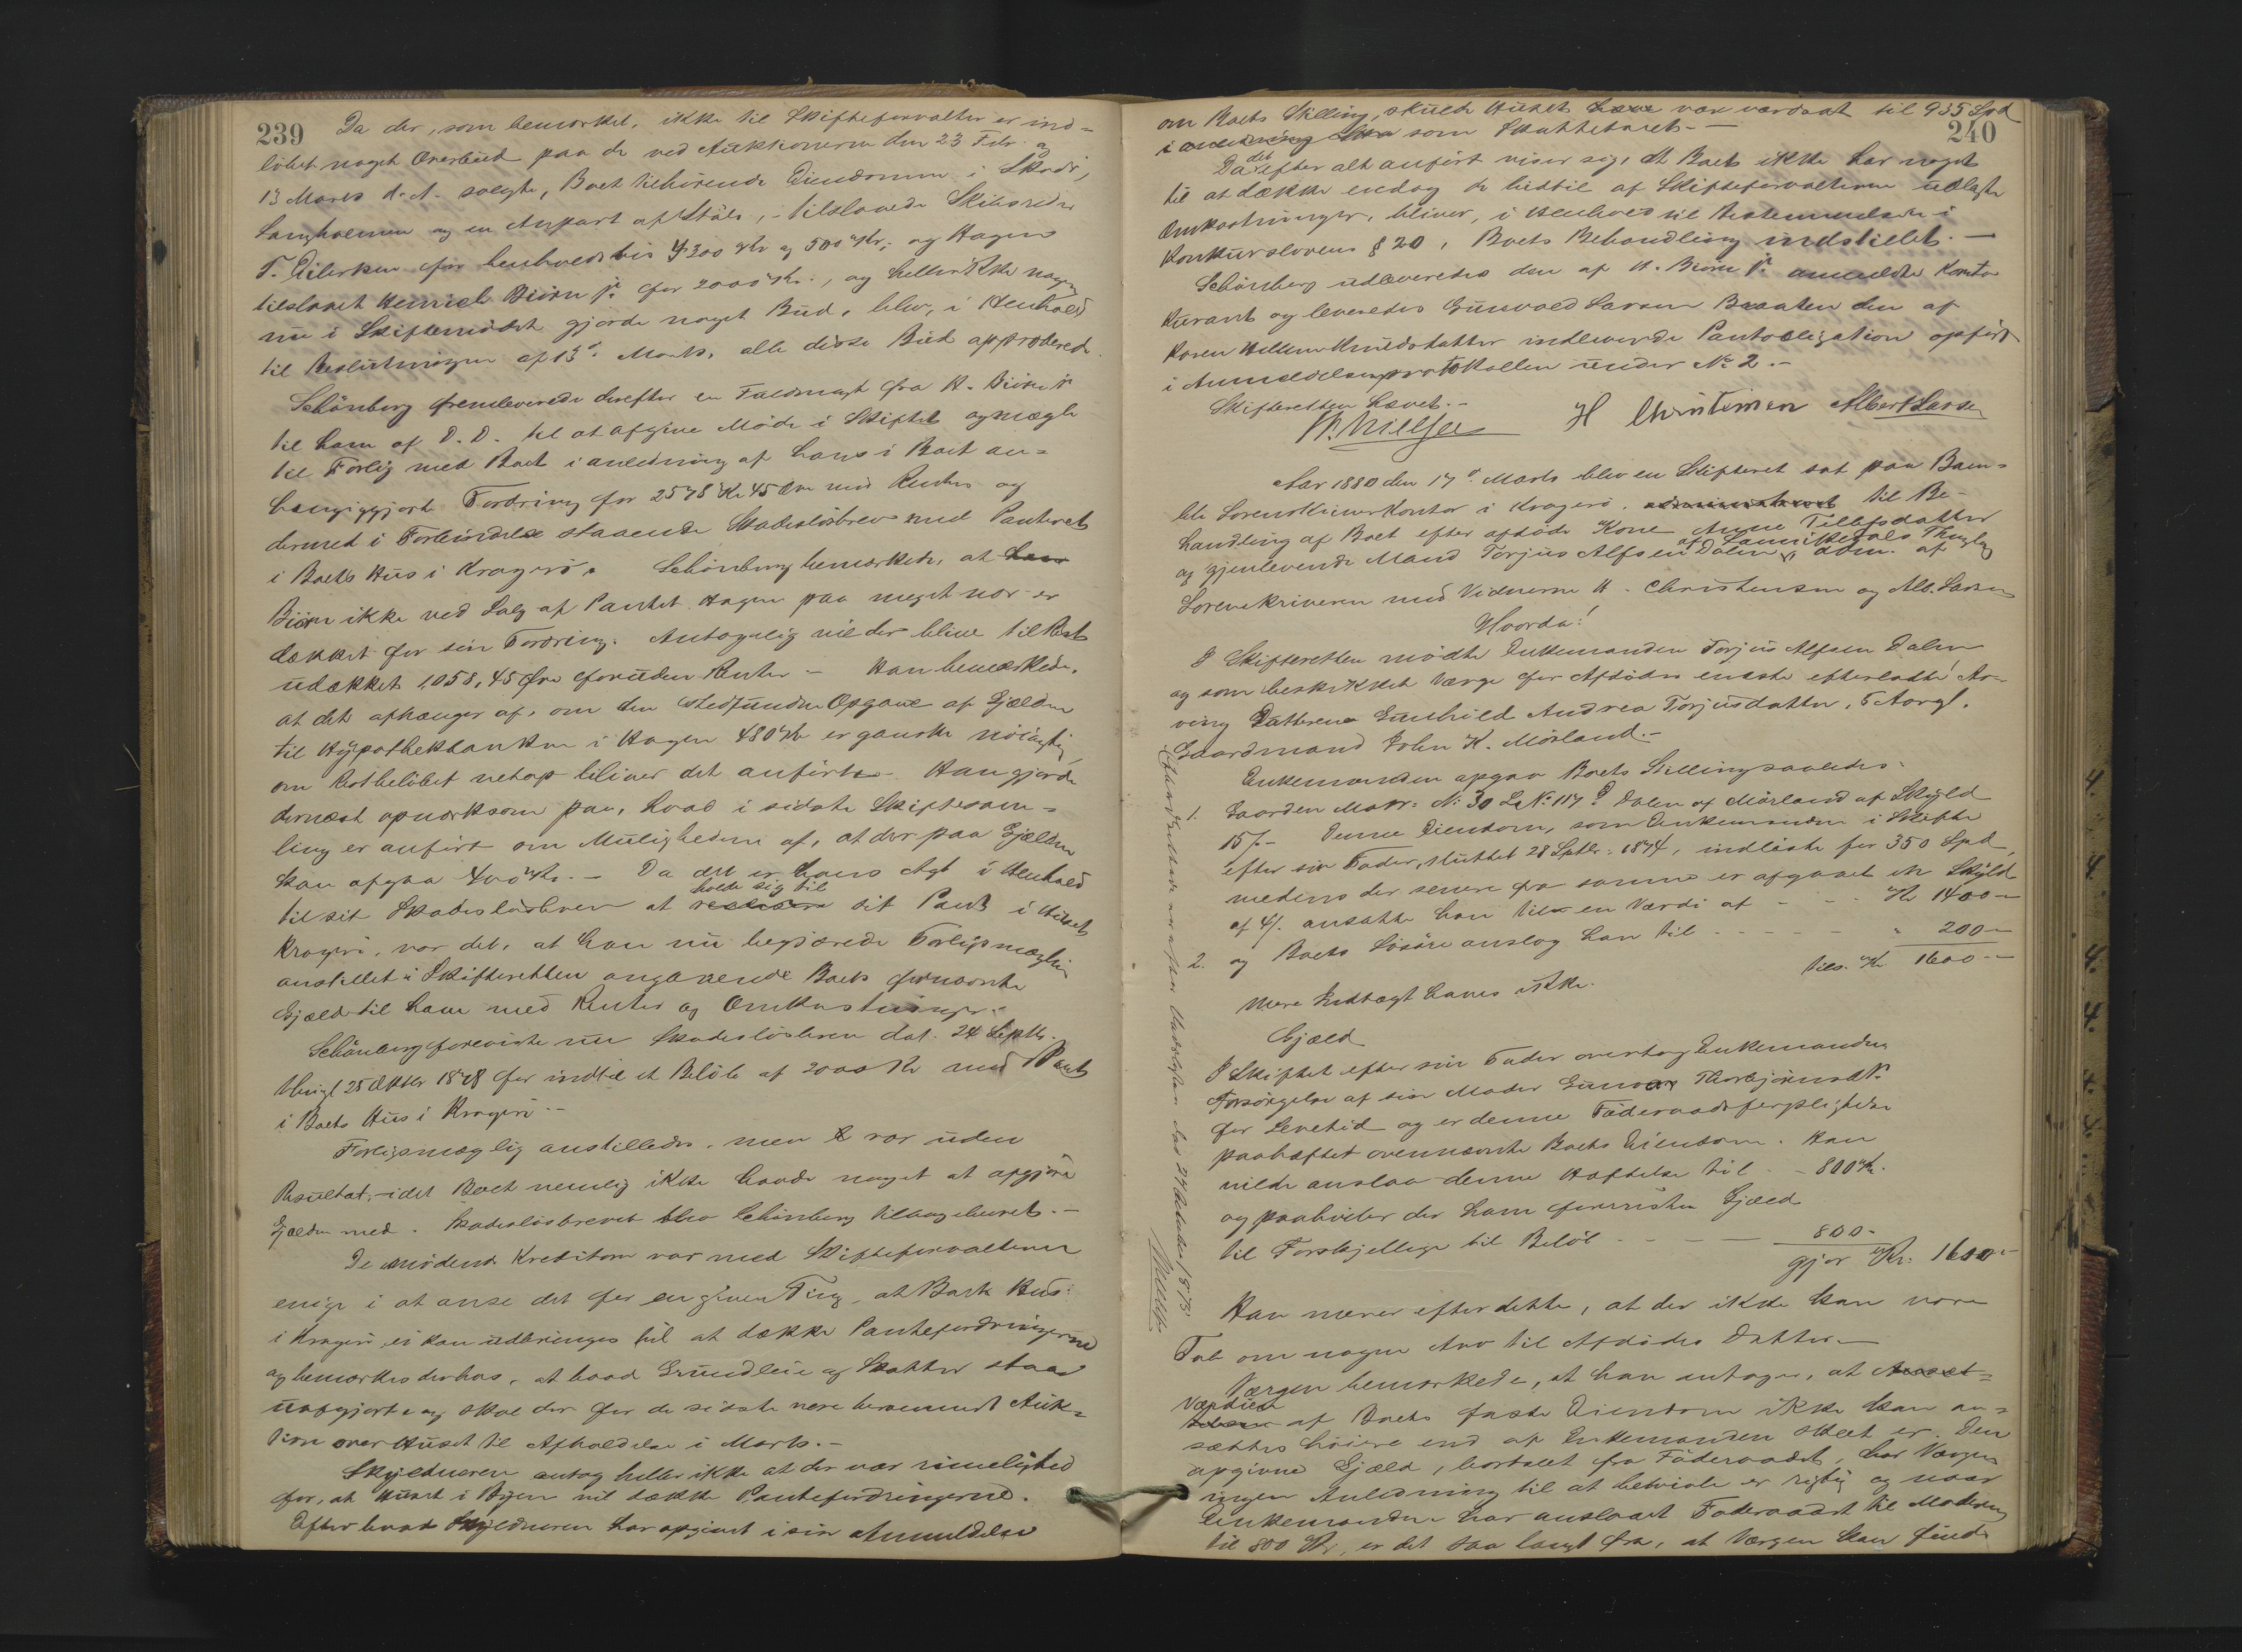 239
Da der, som bemærket, ikke til Skifteforvalteren er ind=
løbet noget Overbud paa de ved Auktionerne den 23 Febr. og
13 Marts d. A. solgte, Boet tilhørende Eiendomme i Skaadø,
Langholmen og en Anpart af Støle, - tilslaaede Skibsreder
T. Eilertsen for henholdsvis 4300 Kr og 500 Kr, og Hagen
tilslaaet Henrich Biørn jr. for 2000 Kr., og heller ikke nogen
nu i Skiftemødet gjorde noget Bud, blev, i Henhold
til Beslutningen af 13de Marts, alle disse Bud approberede.
Schønberg fremleverede derefter en Fuldmagt fra H. Biørn jr
til ham af D. D. til at afgive Møde i Skiftet og mægle
til Forlig med Boet i anledning af hans i Boet an=
hængiggjorte Fordring for 2578 Kr 45 Øre med Renter og
dermed i Forbindelse staaende Skadesløsbrev med Panteret
i Boets Hus i Kragerø. Schønberg bemærkede, at
Biørn ikke ved Salg af Pantet Hagen paa meget nær er
dækket for sin Fordring. Antagelig vil der blive til Rest
udækket 1,058,45 Øre foruden Renter - Han bemærkede,
at det afhænger af, om den stedfundne Opgave af Gjælden
til Hypothekbanken i Hagen 480 Kr er ganske nøiagtig,
om Restbeløbet netop bliver det anførte. Han gjorde
dernæst opmærksom paa, hvad i sidste Skiftesam=
ling er anført om Muligheden af, at der paa Gjælden
kan afgaa 400 Kr. - Da det er hans Agt i Henhold
holde sig til
til sit Skadesløsbrev at realisere sit Pant i Huset
Kragerø, var det, at han nu begjærede Forligsmægling
anstillet i Skifteretten angaaende Boets fornævnte
Gjæld til ham med Renter og Omkostninger.
Schønberg foreviste nu Skadesløsbrev dat. 24 Septbr.
thingl 25 Oktbr 1878 for indtil et Beløb af 2000 Kr med Pant
i Boets Hus i Kragerø. -
Forligsmægling anstilledes, men var uden
Resultat, - idet Boet nemlig ikke havde noget at afgjøre
Gjælden med. Skadesløsbrevet blev Schønberg tilbageleveret. -
De mødende Kreditorer var med Skifteforvalteren
enige i at anse det for en given Ting, at Boets Hus
i Kragerø ei kan udbringes til at dække Pantefordringerne
og bemærkes derhos, at baade Grundleie og Skatter staar
uafgjort, og skal der for de sidste være berammet Auk=
tion over Huset til Afholdelse i Marts. -
Skyldneren antog heller ikke at der var rimelighed
for, at Huset i Byen vil dække Pantefordringerne.
Efter hvad Skyldneren har opgivet i sin Anmeldelse
240
om Boets Stilling, skulde Huset have vær værdsat til 935 Spd
i anledning som Skattetaxt. -
det
Da efter alt anført viser sig, at Boet ikke har noget
til at dække endog de hidtil af Skifteforvalteren udlagte
Omkostninger, bliver, i Henhold til Bestemmelsen i
Konkurslovens § 20, Boets Behandling indstillet. -
Schønberg udleveredes den af H. Biørn jr. anmeldte Konto
Kurant og leveredes Gunvald Larsen Braaten den af
Karen Helene Knudsdatter indleverede Pantobligation opført
i Anmeldelsesprotokollen under No 2. -
Skifteretten hævet. -
H Christensen Albert Larsen
Aar 1880 den 17de Marts blev en Skifteret sat paa Bam=
ble Sorenskriverkontor i Kragerø, administreret til Be-
handling af Boet efter afdøde Kone Anne Tellefsdatter
af Sannikedals Thinglag
og gjenlevende Mand Torjus Alfsen Dalen, adm. af
Sorenskriveren med Vidnerne H. Christensen og Alb. Larsen
Hvorda!
I Skifteretten mødte Enkemanden Torjus Alfsen Dalen
og som beskikket Værge for Afdødes eneste efterladte Ar=
ving Datteren Gunhild Andrea Torjusdatter, 5 Aargl.
Gaardmand John K. Mørland. -
Enkemanden opgav Boets Stilling saaledes:
1. Gaarden Matr: No 30 L No 117d Dalen af Mørland af Skyld
15/- Denne Eiendom, som Enkemanden i Skifte
efter sin Fader, sluttet 28 Septbr. 1874, indløste for 350 Spd,
medens der senere fra samme er afgaaet en Skyld
af 4/. ansatte han til en Værdi af - - - Kr 1400 -
2. og Boets Løsøre anslog han til - - - - - " 200 -
tils. Kr 1600 -
Mere Indtægt haves ikke.
Gjæld
I Skiftet efter sin Fader overtog Enkemanden
Forsørgelse af sin Moder Gunvor Thorbjørnsdtr.
for Levetid og er denne Føderaadsforpligtelse
paaheftet ovennævnte Boets Eiendom. Han
vilde anslaa denne Heftelse til - - 800 Kr.
og paahviler der ham forresten Gjæld
til Forskjellige til Beløb - - - - 800 -
gjør Kr. 1600 -
Han mener efter dette, at der ikke kan være
Tale om nogen Arv til Afdødes Datter. -
Værgen bemærkede, at han antager, at Ansæt=
Værdien
telsen af Boets faste Eiendom ikke kan an=
sættes høiere end af Enkemanden skeet er. Den
opgivne Gjæld, bortseet fra Føderaadet, har Værgen
ingen Anledning til at betvivle er rigtig og naar
Enkemanden har anslaaet Føderaadet til Moderen
til 800 Kr, er det saa langt fra, at Værgen kan finde